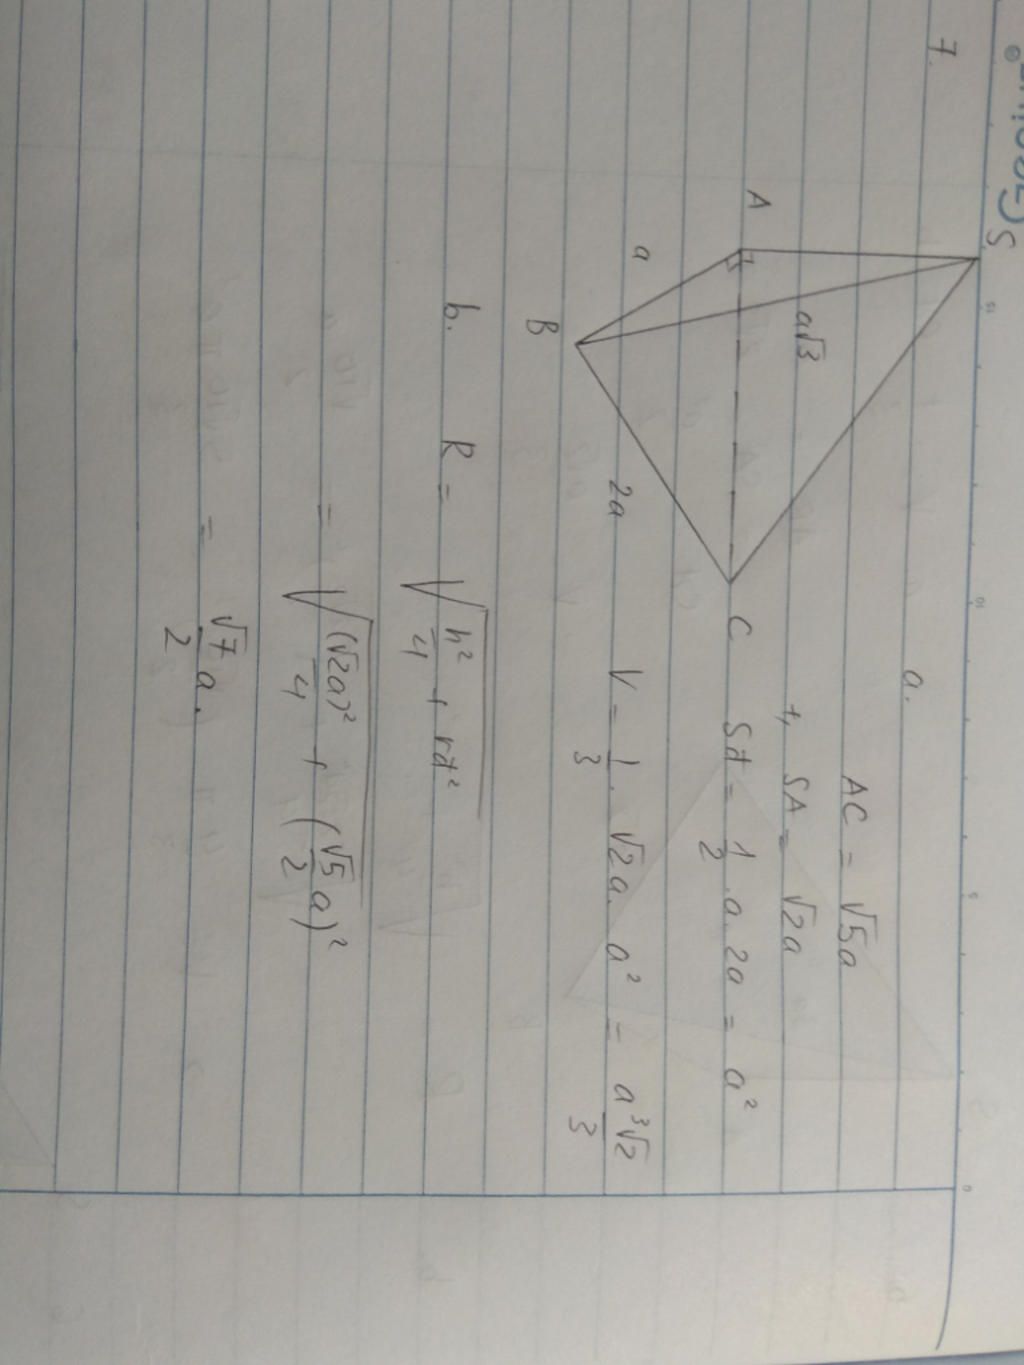 7.
S
A
a√3
a
B
2a
C
a.
AC = √5a
+, SA = √2a
Sđ = 1/2 . a. 2a = a²
V = 1/3 . √2a. a² = a³√2/3
b. R = √(h²/4 + rđ²)
= √((√2a)²/4 + (√5/2 a)²)
= √7/2 a.